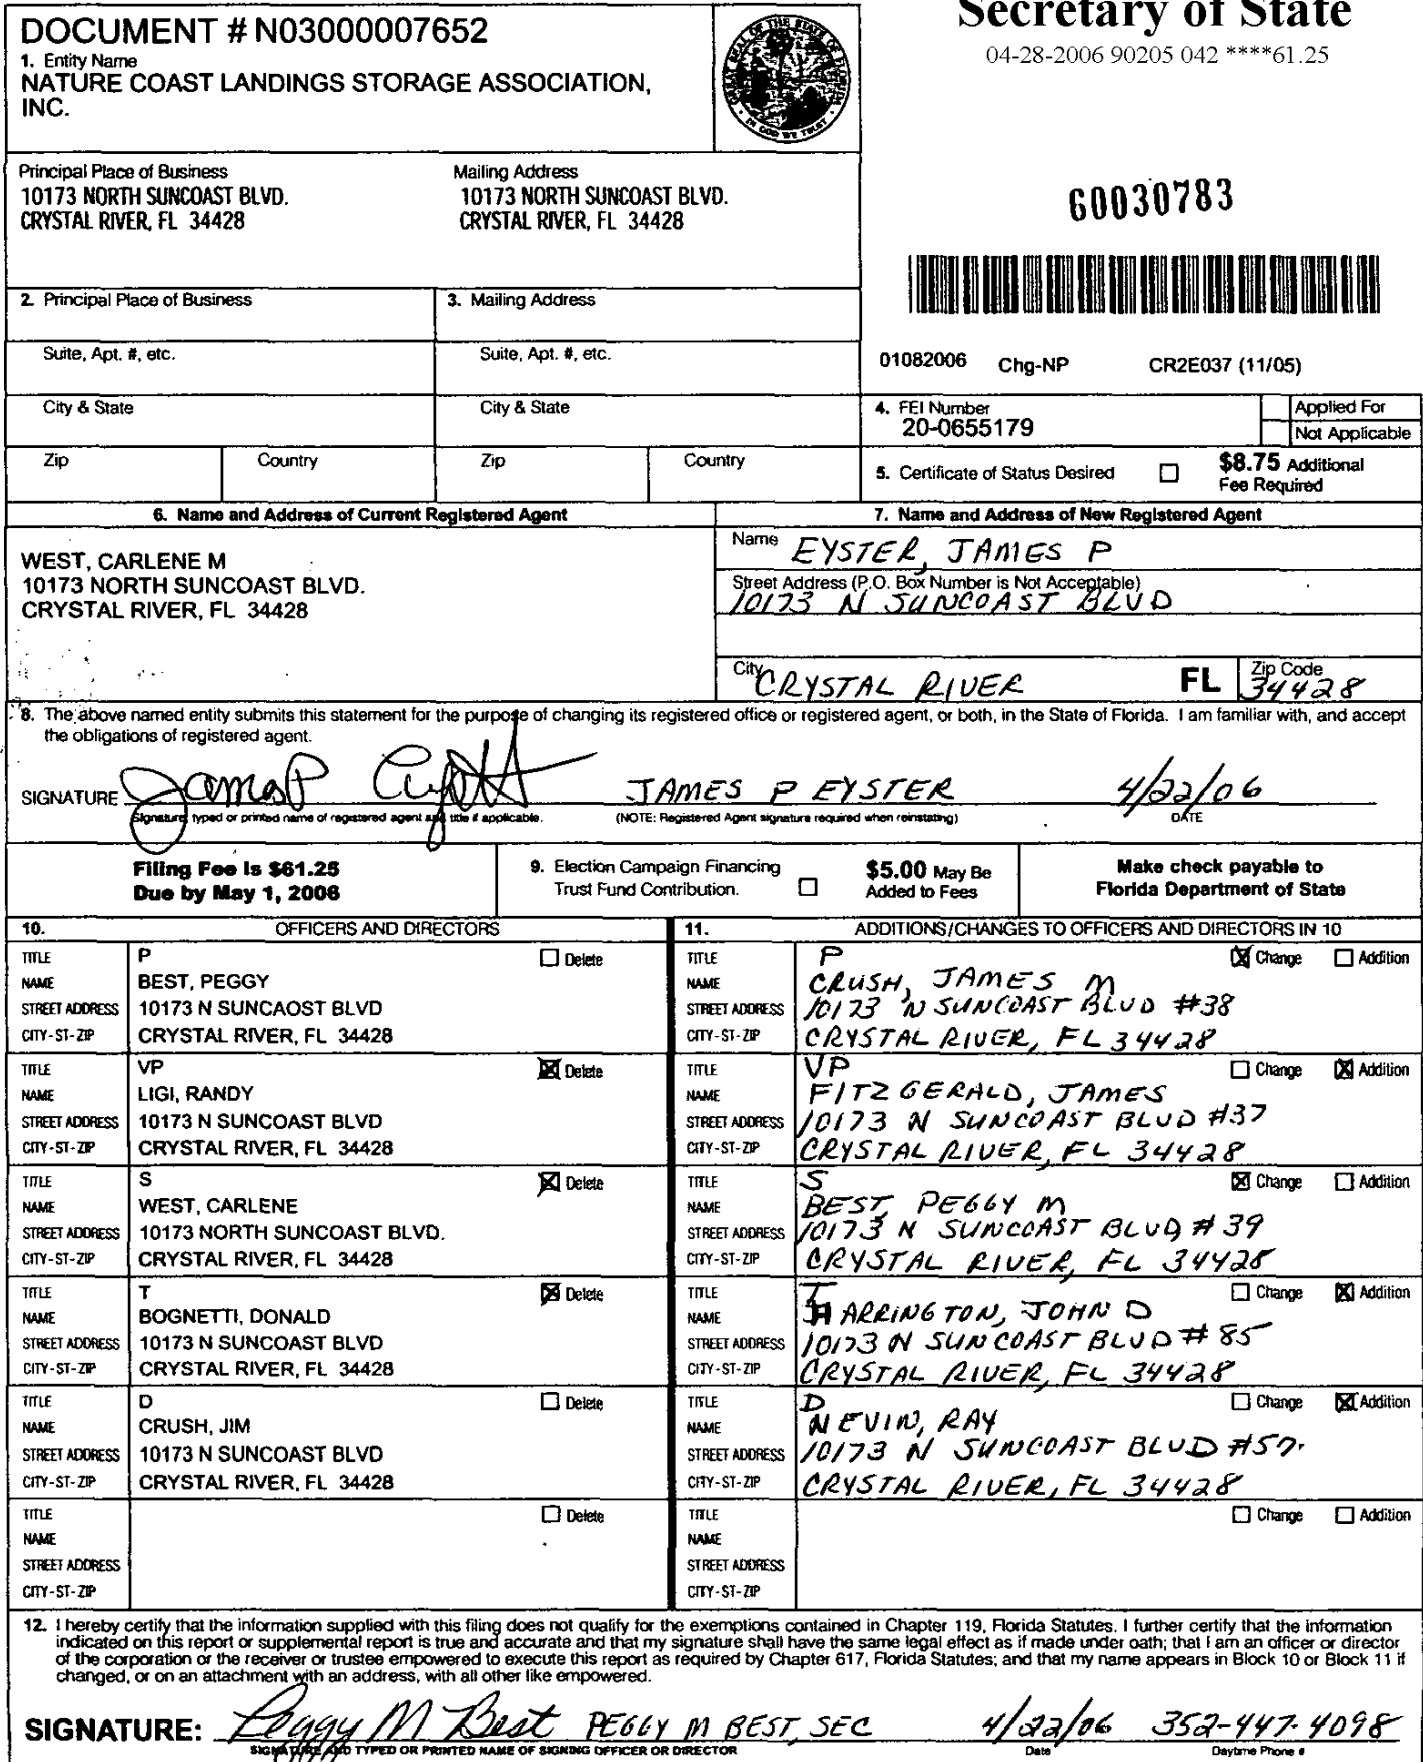 Secretary of State
04-28-2006 90205 042 ****61.25
DOCUMENT # N03000007652
1. Entity Name
NATURE COAST LANDINGS STORAGE ASSOCIATION,
INC.
Principal Place of Business
10173 NORTH SUNCOAST BLVD.
CRYSTAL RIVER, FL 34428
Mailing Address
10173 NORTH SUNCOAST BLVD.
CRYSTAL RIVER, FL 34428
60030783
2. Principal Place of Business
3. Mailing Address
Suite, Apt. #, etc.
Suite, Apt. #, etc.
01082006 Chg-NP CR2E037 (11/05)
City & State
City & State
4. FEI Number
20-0655179
Applied For
Not Applicable
Zip Country
Zip Country
5. Certificate of Status Desired
$8.75 Additional
Fee Required
6. Name and Address of Current Registered Agent
WEST, CARLENE M
10173 NORTH SUNCOAST BLVD.
CRYSTAL RIVER, FL 34428
7. Name and Address of New Registered Agent
Name EYSTER, JAMES P
Street Address (P.O. Box Number is Not Acceptable)
10173 N SUNCOAST BLVD
City CRYSTAL RIVER FL Zip Code 34428
8. The above named entity submits this statement for the purpose of changing its registered office or registered agent, or both, in the State of Florida. I am familiar with, and accept
the obligations of registered agent.
SIGNATURE James P Eyster JAMES P EYSTER 4/22/06
Signature, typed or printed name of registered agent and title if applicable. (NOTE: Registered Agent signature required when reinstating) DATE
Filing Fee is $61.25
Due by May 1, 2006
9. Election Campaign Financing
Trust Fund Contribution.
$5.00 May Be
Added to Fees
Make check payable to
Florida Department of State
10. OFFICERS AND DIRECTORS
11. ADDITIONS/CHANGES TO OFFICERS AND DIRECTORS IN 10
TITLE P Delete
NAME BEST, PEGGY
STREET ADDRESS 10173 N SUNCAOST BLVD
CITY-ST-ZIP CRYSTAL RIVER, FL 34428
TITLE P Change Addition
NAME CRUSH, JAMES M
STREET ADDRESS 10173 N SUNCOAST BLVD #38
CITY-ST-ZIP CRYSTAL RIVER, FL 34428
TITLE VP Delete
NAME LIGI, RANDY
STREET ADDRESS 10173 N SUNCOAST BLVD
CITY-ST-ZIP CRYSTAL RIVER, FL 34428
TITLE VP Change Addition
NAME FITZGERALD, JAMES
STREET ADDRESS 10173 N SUNCOAST BLVD #37
CITY-ST-ZIP CRYSTAL RIVER, FL 34428
TITLE S Delete
NAME WEST, CARLENE
STREET ADDRESS 10173 NORTH SUNCOAST BLVD.
CITY-ST-ZIP CRYSTAL RIVER, FL 34428
TITLE S Change Addition
NAME BEST, PEGGY M
STREET ADDRESS 10173 N SUNCOAST BLVD, #39
CITY-ST-ZIP CRYSTAL RIVER, FL 34428
TITLE T Delete
NAME BOGNETTI, DONALD
STREET ADDRESS 10173 N SUNCOAST BLVD
CITY-ST-ZIP CRYSTAL RIVER, FL 34428
TITLE T Change Addition
NAME HARRINGTON, JOHN D
STREET ADDRESS 10173 N SUNCOAST BLVD #85
CITY-ST-ZIP CRYSTAL RIVER, FL 34428
TITLE D Delete
NAME CRUSH, JIM
STREET ADDRESS 10173 N SUNCOAST BLVD
CITY-ST-ZIP CRYSTAL RIVER, FL 34428
TITLE D Change Addition
NAME NEVIN, RAY
STREET ADDRESS 10173 N SUNCOAST BLVD #57
CITY-ST-ZIP CRYSTAL RIVER, FL 34428
TITLE Delete
NAME
STREET ADDRESS
CITY-ST-ZIP
TITLE Change Addition
NAME
STREET ADDRESS
CITY-ST-ZIP
12. I hereby certify that the information supplied with this filing does not qualify for the exemptions contained in Chapter 119, Florida Statutes. I further certify that the information
indicated on this report or supplemental report is true and accurate and that my signature shall have the same legal effect as if made under oath; that I am an officer or director
of the corporation or the receiver or trustee empowered to execute this report as required by Chapter 617, Florida Statutes; and that my name appears in Block 10 or Block 11 if
changed, or on an attachment with an address, with all other like empowered.
SIGNATURE: Peggy M Best PEGGY M BEST, SEC 4/22/06 352-447-4098
SIGNATURE AND TYPED OR PRINTED NAME OF SIGNING OFFICER OR DIRECTOR Date Daytime Phone #